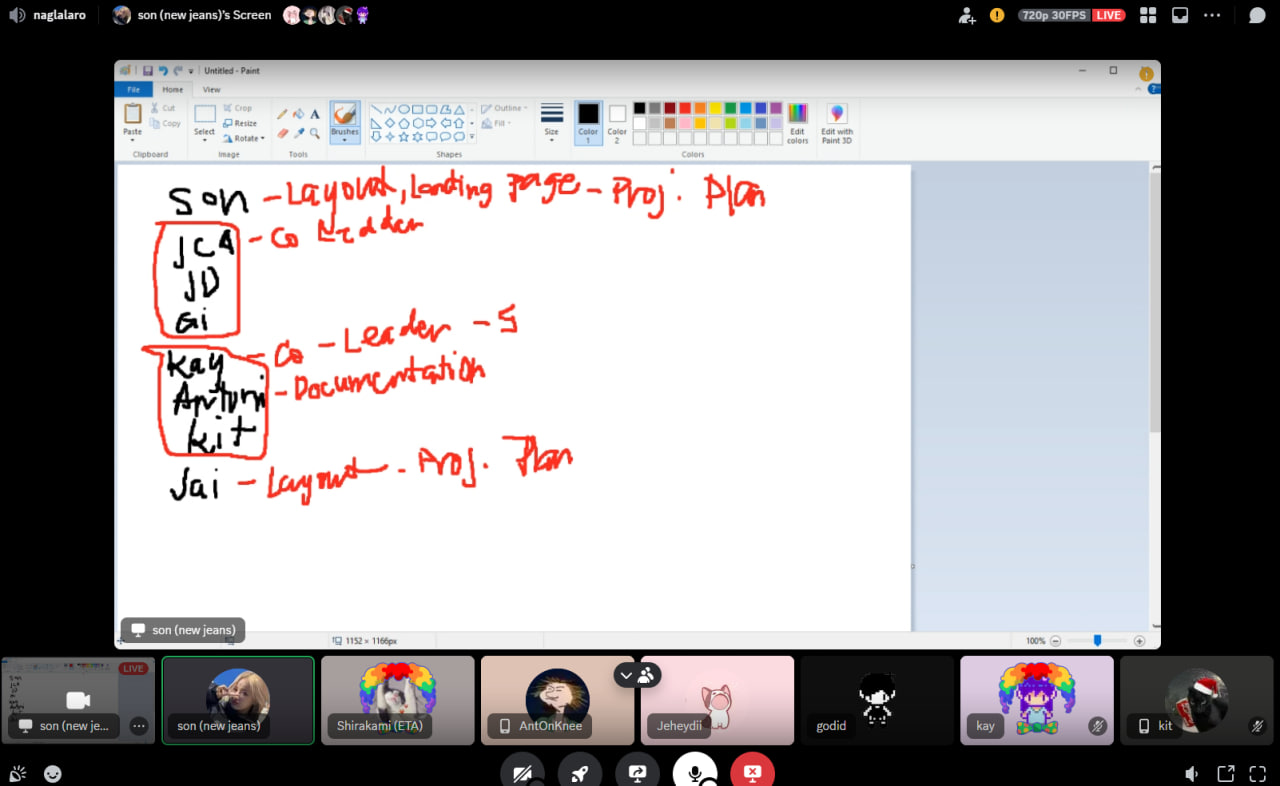 naglalaro
son (new jeans)'s Screen
720p 30FPS LIVE
Untitled - Paint
File Home View
Paste
Cut
Copy
Clipboard
Select
Crop
Resize
Rotate
Image
Tools
Brushes
Shapes
Outline
Fill
Size
Color 1
Color 2
Edit colors
Edit with Paint 3D
Colors
Son - Layout, Landing page - Proj. Plan
JCA - Co Leader
JD
Gi
Kay - Co - Leader - S
Antoni - Documentation
Kit
Jai - Layout - Proj. Plan
son (new jeans)
1152 × 1166px
100%
LIVE
son (new je...
son (new jeans)
Shirakami (ETA)
AntOnKnee
Jeheydii
godid
kay
kit